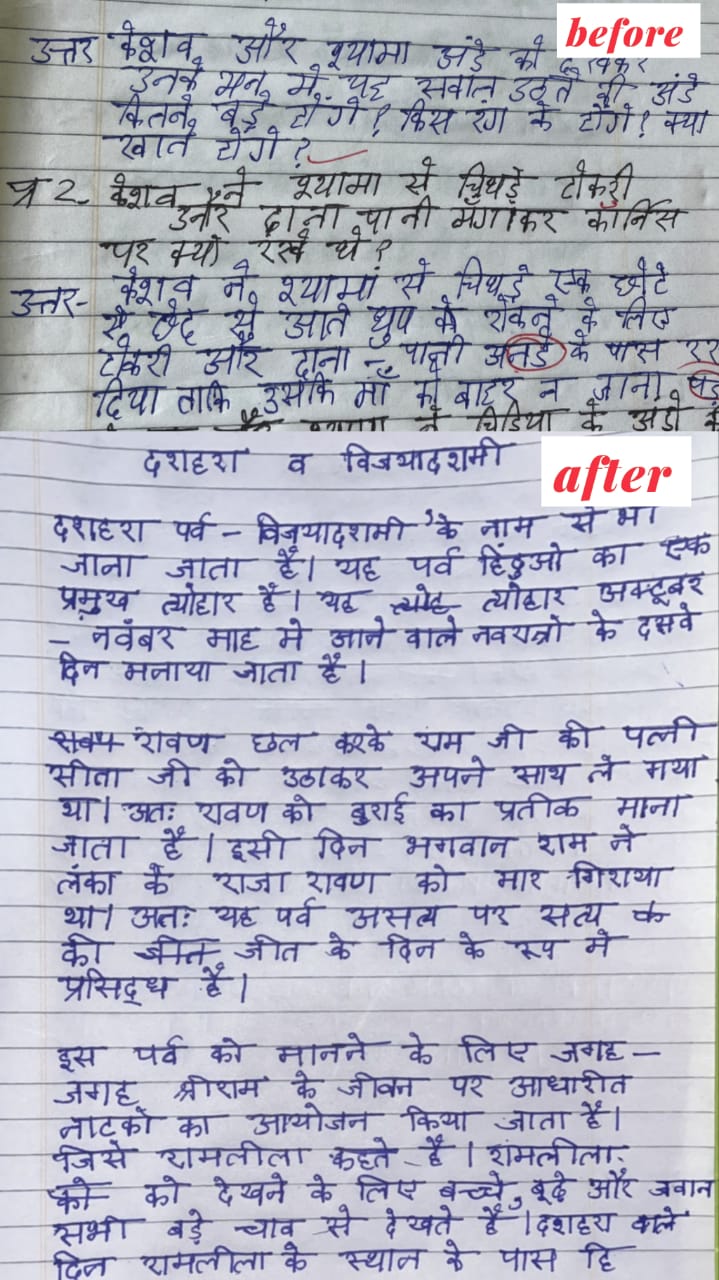 before
उत्तर केशव और श्यामा अंडे को देखकर
उनके मन में यह सवाल उठते की अंडे
कितने बड़े होंगे? किस रंग के होंगे? क्या
खाते होंगे?
प्र 2- केशव ने श्यामा से चिथड़े टोकरी
और दाना पानी मँगाकर कार्निस
पर क्यों रखे थे?
उत्तर- केशव ने श्यामा से चिथड़े एक छोटे
से छेद से आते धुप को रोकने के लिए
टोकरी और दाना - पानी के पास
दिया ताकि उसकि माँ को बाहर न जाना पड़
चिडिया के अंडो
after
दशहरा व विजयादशमी
दशहरा पर्व - विजयादशमी के नाम से भी
जाना जाता है। यह पर्व हिंदुओ का एक
प्रमुख त्योहार है। यह त्योह त्योहार अक्टूबर
- नवंबर माह मे आने वाले नवरात्रो के दसवे
दिन मनाया जाता है।
रावण छल करके राम जी की पत्नी
सीता जी को उठाकर अपने साथ ले गया
था। अतः रावण को बुराई का प्रतीक माना
जाता है। इसी दिन भगवान राम ने
लंका के राजा रावण को मार गिराया
था। अतः यह पर्व असत्य पर सत्य क
की जीत जीत के दिन के रूप मे
प्रसिद्ध है।
इस पर्व को मानने के लिए जगह -
जगह श्रीराम के जीवन पर आधारीत
नाटको का आयोजन किया जाता है।
जिसे रामलीला कहते है। रामलीला
को को देखने के लिए बच्चे, बूढे और जवान
सभी बड़े चाव से देखते है। दशहरा वाले
दिन रामलीला के स्थान के पास हि